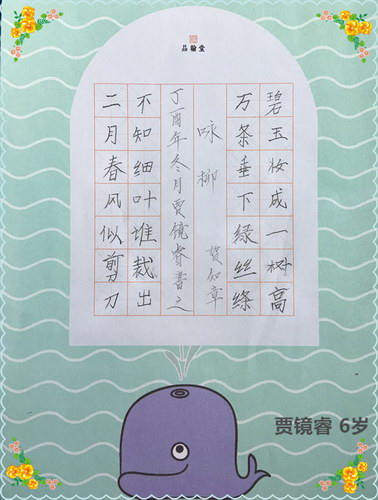 品翰堂
碧玉妆成一树高
万条垂下绿丝绦
咏柳
贺知章
丁酉年冬月贾镜睿书之
不知细叶堆裁出
二月春风似剪刀
贾镜睿 6岁